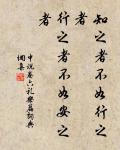 知之者不如行之
者行之者不如安之
者
中說卷六礼樂篇詞典
網集